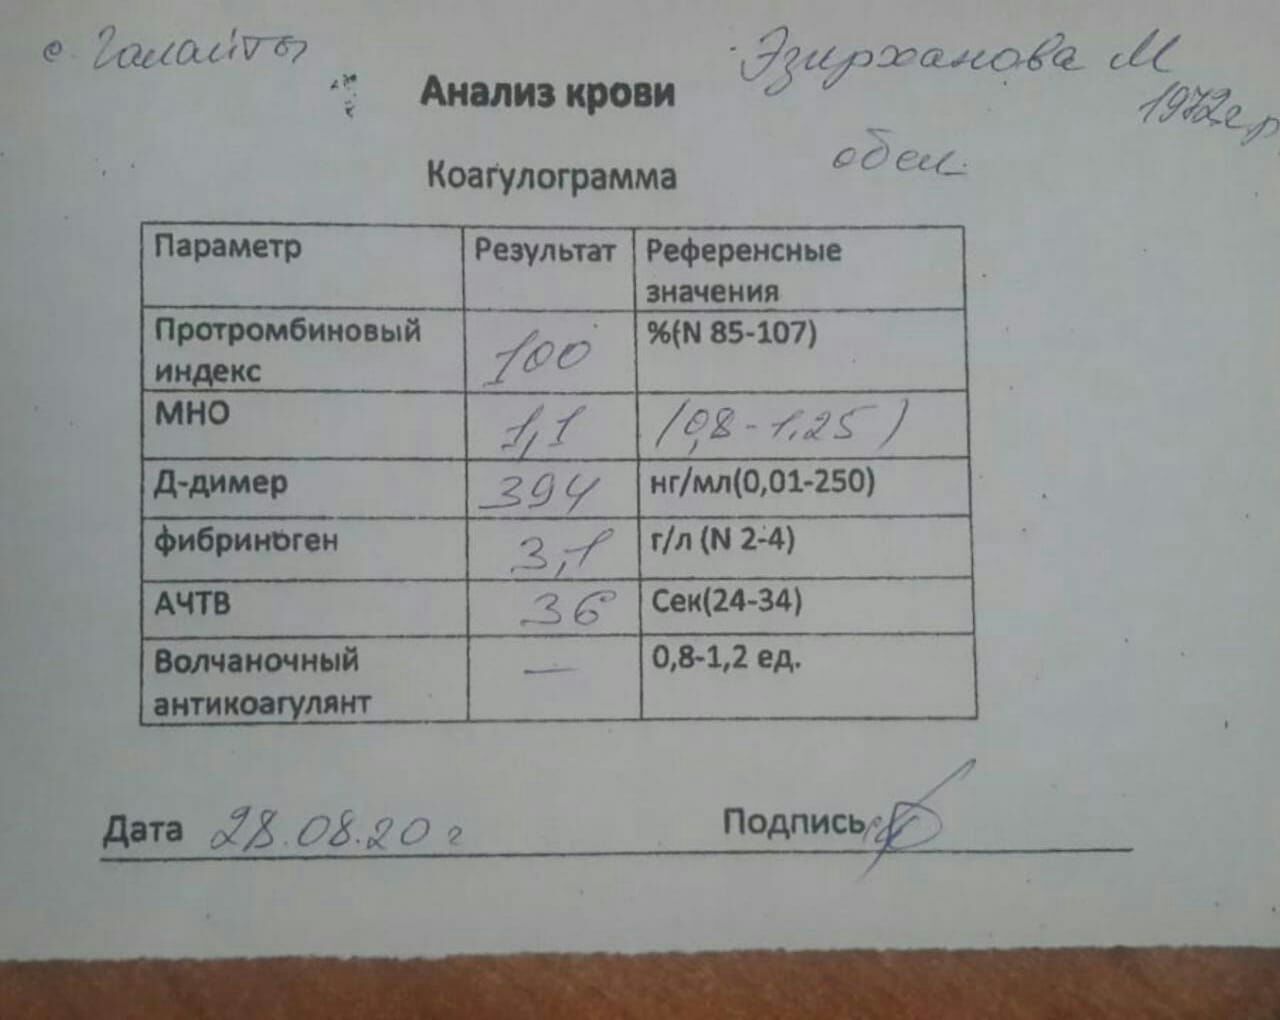 с. Галайты
Эзирханова М
1972г.р
Анализ крови
Коагулограмма
Параметр Результат Референсные значения
Протромбиновый индекс 100 %(N 85-107)
МНО 1,1 (0,8-1,25)
Д-димер 394 нг/мл(0,01-250)
фибриноген 3,1 г/л (N 2-4)
АЧТВ 36 Сек(24-34)
Волчаночный антикоагулянт — 0,8-1,2 ед.
Дата 28.08.20 г Подпись